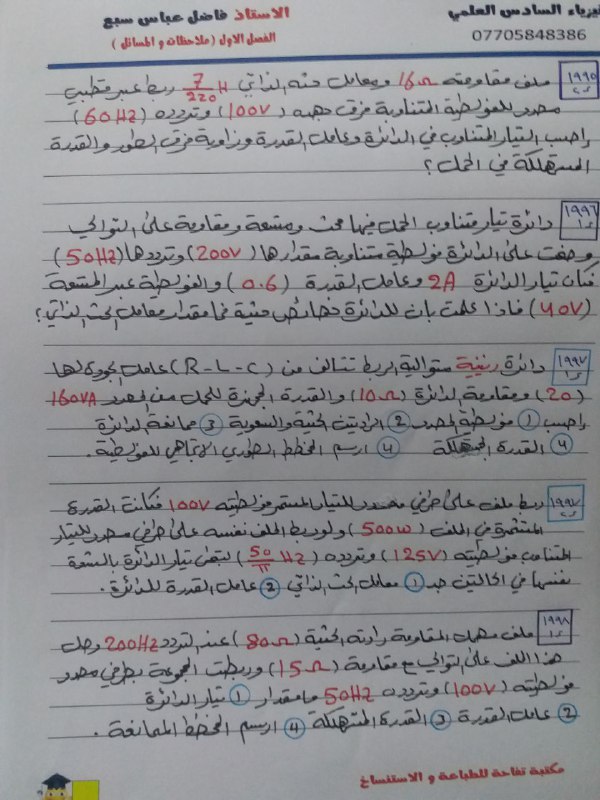 فيزياء السادس العلمي
07705848386
الاستاذ فاضل عباس سبع
الفصل الاول (ملاحظات و المسائل)
١٩٩٥ ملف مقاومته 16Ω ومعامل حثه الذاتي 7/220 H ربط عبر قطبي
مصدر للفولطية المتناوبة فرق جهده (100V) وتردده (60Hz)
احسب التيار المتناوب في الدائرة وعامل القدرة وزاوية فرق الطور والقدرة
المستهلكة في الحمل؟
١٩٩٦ دائرة تيار متناوب الحمل فيها محث ومتسعة ومقاومة على التوالي
وضعت على الدائرة فولطية متناوبة مقدارها (200V) وترددها (50Hz)
فكان تيار الدائرة 2A وعامل القدرة (0.6) والفولطية عبر المتسعة
(40V) فاذا علمت بان للدائرة خصائص حثية فما مقدار معامل الحث الذاتي؟
١٩٩٧ دائرة رنينية متوالية الربط تتألف من (R-L-C) عامل الجودة لها
(20) ومقاومة الدائرة (10Ω) والقدرة المجهزة للحمل من المصدر 160VA
احسب ① فولطية المصدر ② الرادتين الحثية والسعوية ③ ممانعة الدائرة
④ القدرة المستهلكة ④ ارسم المخطط الطوري الاتجاهي للفولطية.
١٩٩٧ ربط ملف على طرفي مصدر للتيار المستمر فولطيته 100V فكانت القدرة
المستثمرة في الملف (500W) ولو ربط الملف نفسه على طرفي مصدر للتيار
المتناوب فولطيته (125V) وتردده (50/π Hz) لبقى تيار الدائرة بالنسبة
نفسها في الحالتين جد ① معامل الحث الذاتي ② عامل القدرة للدائرة.
١٩٩٨ ملف مهمل المقاومة رادته الحثية (80Ω) عند التردد 200Hz وصل
هذا الملف على التوالي مع مقاومة (15Ω) وربطت المجموعة بطرفي مصدر
فولطيته (100V) وتردده 50Hz ما مقدار ① تيار الدائرة
② عامل القدرة ③ القدرة المستهلكة ④ ارسم المخطط الممانعة.
مكتبة تفاحة للطباعة و الاستنساخ